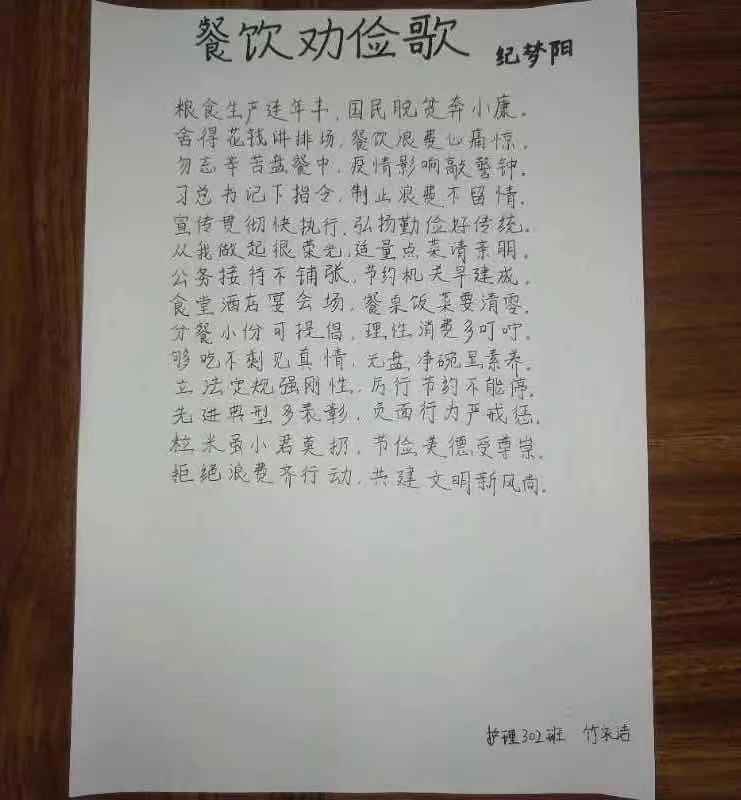 餐饮劝俭歌 纪梦阳
粮食生产连年丰，国民脱贫奔小康。
舍得花钱讲排场，餐饮浪费心痛惊。
勿忘辛苦盘餐中，疫情影响敲警钟。
习总书记下指令，制止浪费不留情。
宣传贯彻快执行，弘扬勤俭好传统。
从我做起很荣光，适量点菜请亲朋。
公务接待不铺张，节约机关早建成。
食堂酒店宴会场，餐桌饭菜要清零。
分餐小份可提倡，理性消费多叮咛。
够吃不剩见真情，光盘净碗呈素养。
立法定规强刚性，厉行节约不能停。
先进典型多表彰，负面行为严戒惩。
粒米虽小君莫扔，节俭美德受尊崇。
拒绝浪费齐行动，共建文明新风尚。
护理302班 竹